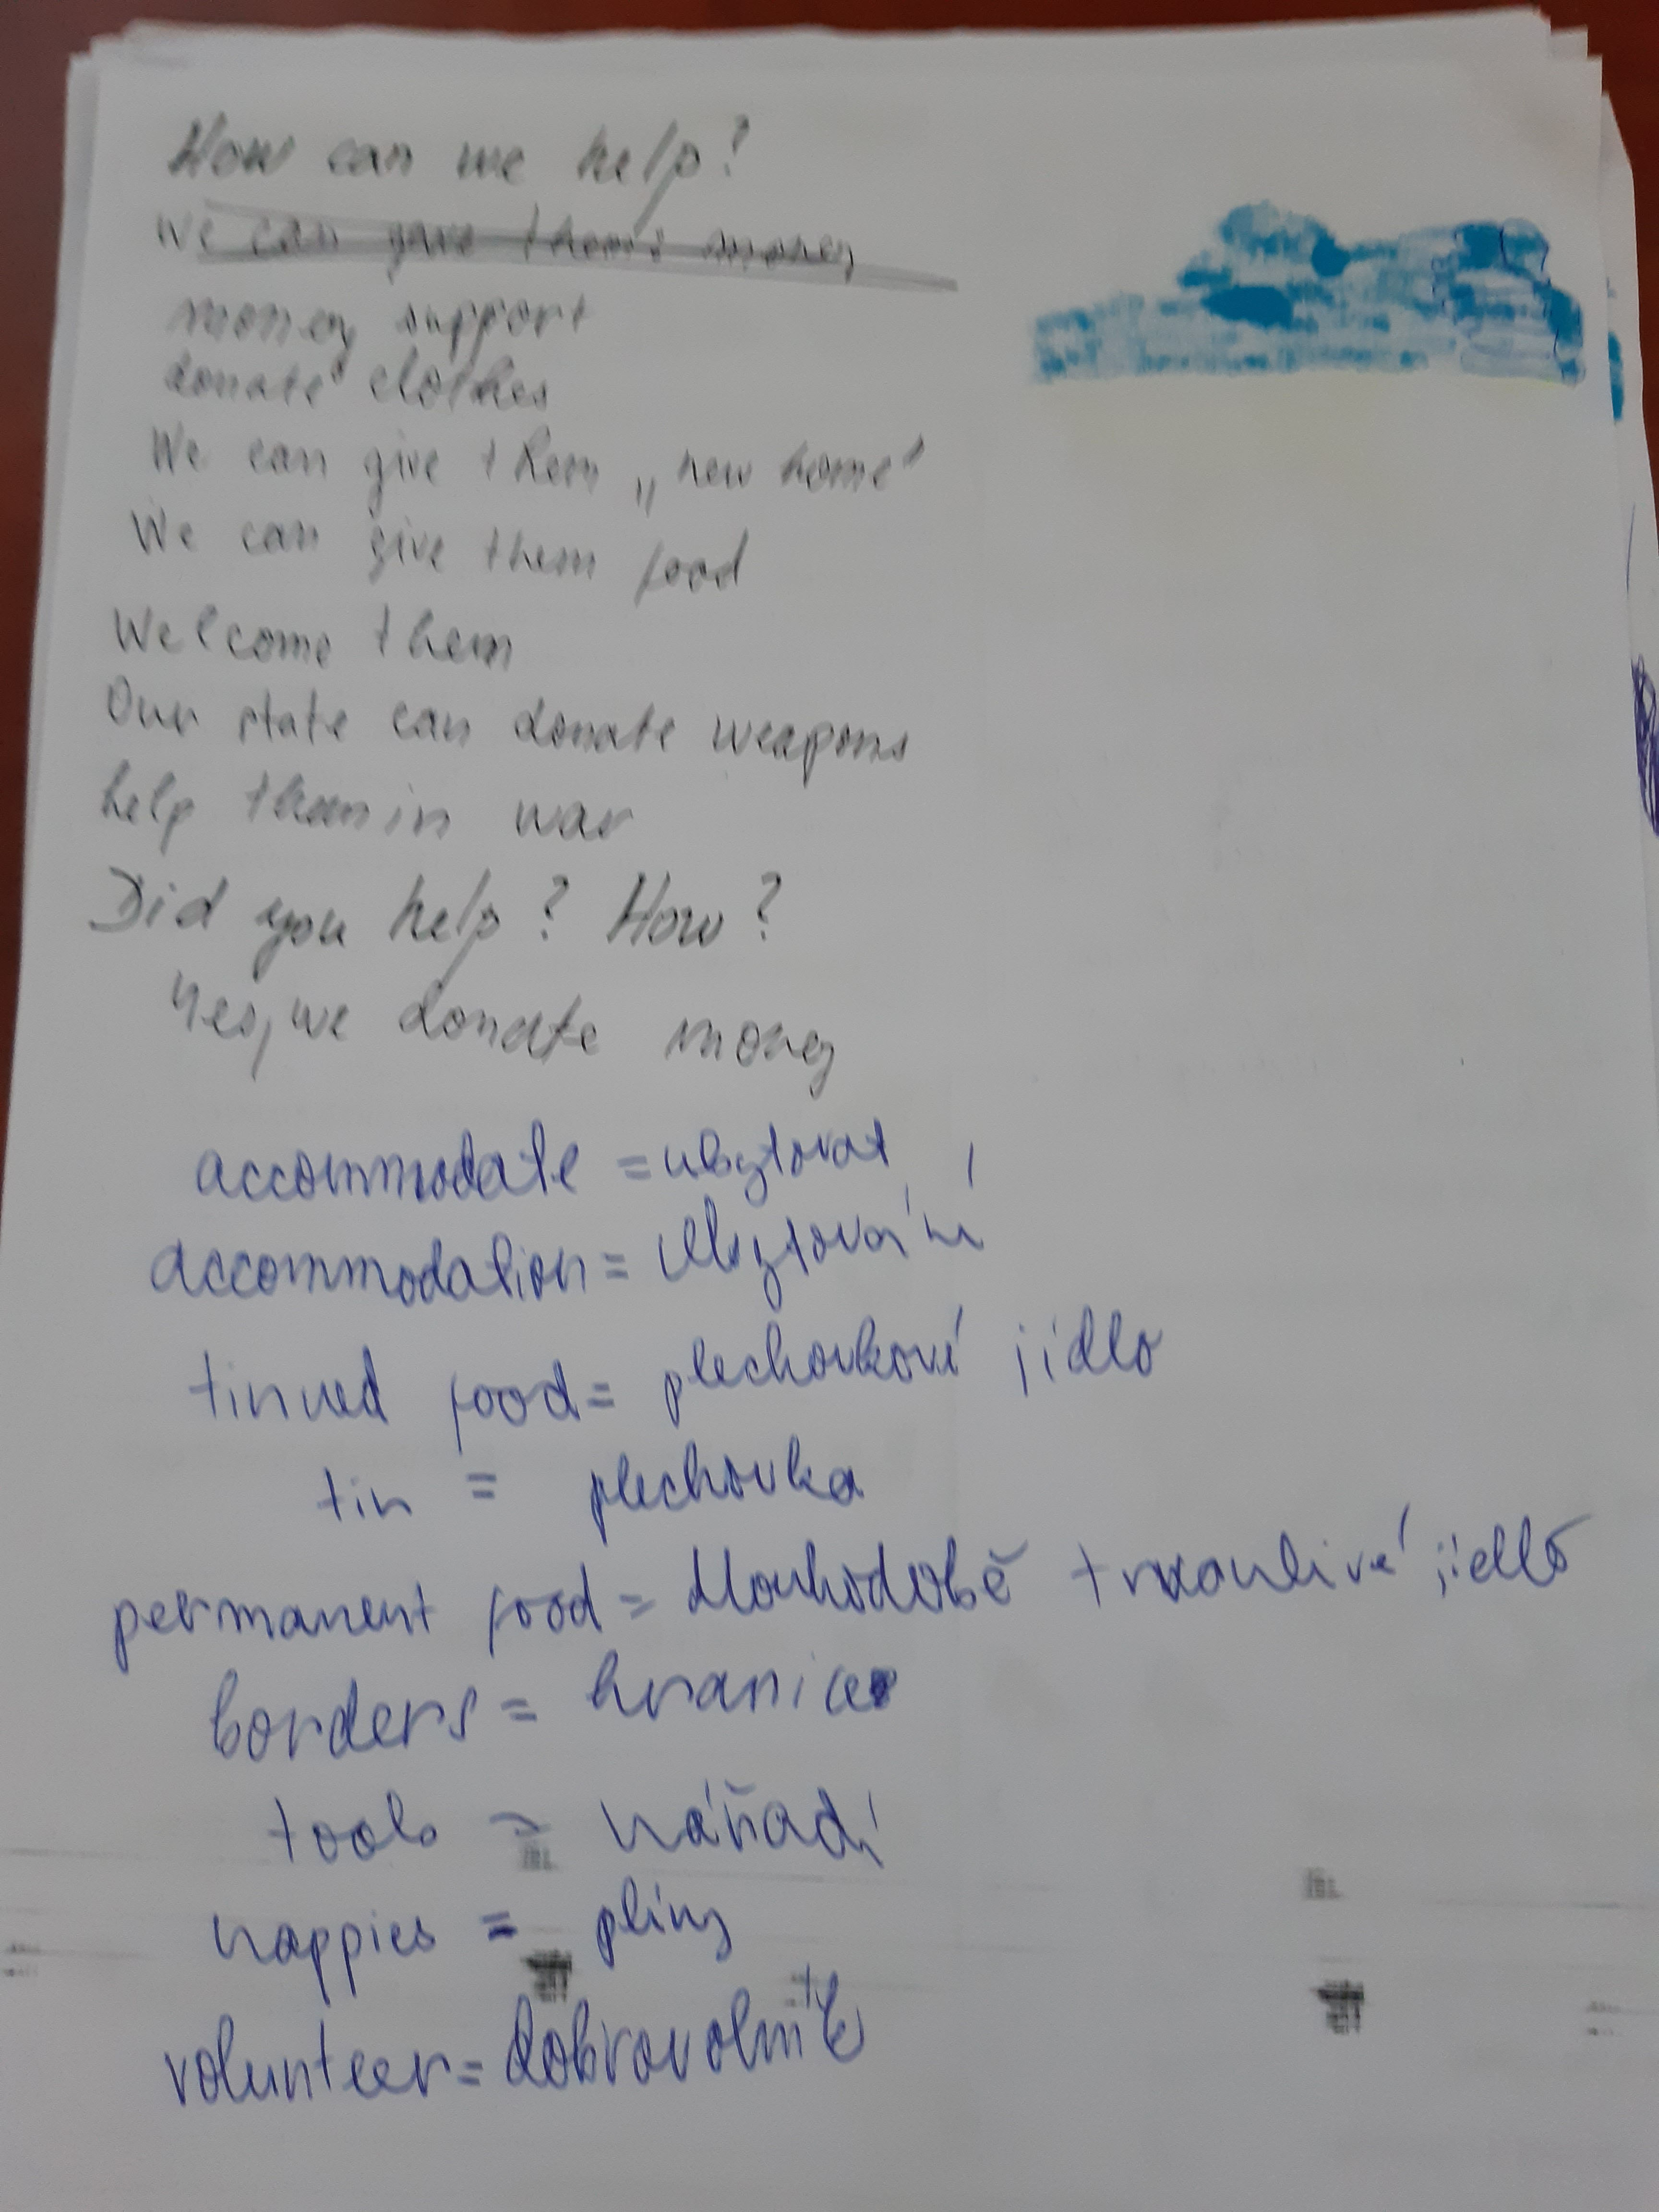 How can we help?
We can gave them money
money support
donate clothes
We can give them „new home"
We can give them food
Welcome them
Our state can donate weapons
help them in war
Did you help? How?
Yes, we donate money
accommodate = ubytovat
accommodation = ubytování
tinned food = plechovkové jídlo
tin = plechovka
permanent food = dlouhodobě trvanlivé jídlo
borders = hranice
tools = nářadí
nappies = pliny
volunteer = dobrovolník